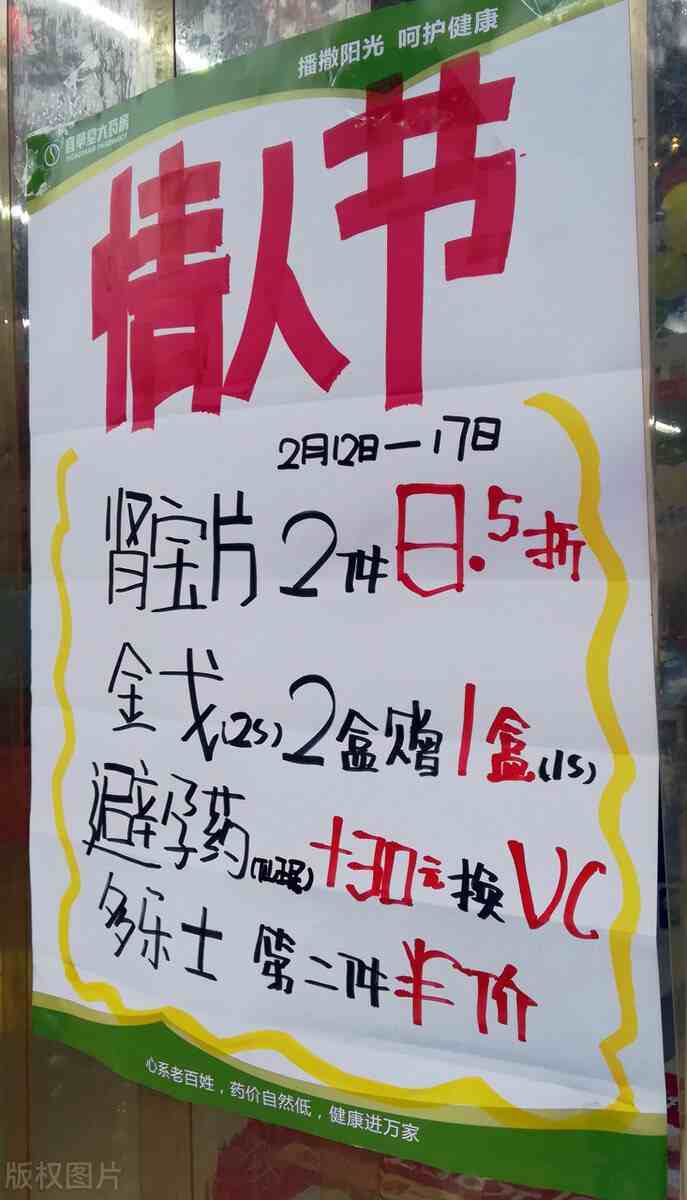 播撒阳光 呵护健康
情人节
2月12日—17日
肾宝片 2件 8.5折
金戈(2S) 2盒赠1盒(1S)
避孕药 +30元换VC
多乐士 第二件半价
心系老百姓，药价自然低，健康进万家
版权图片